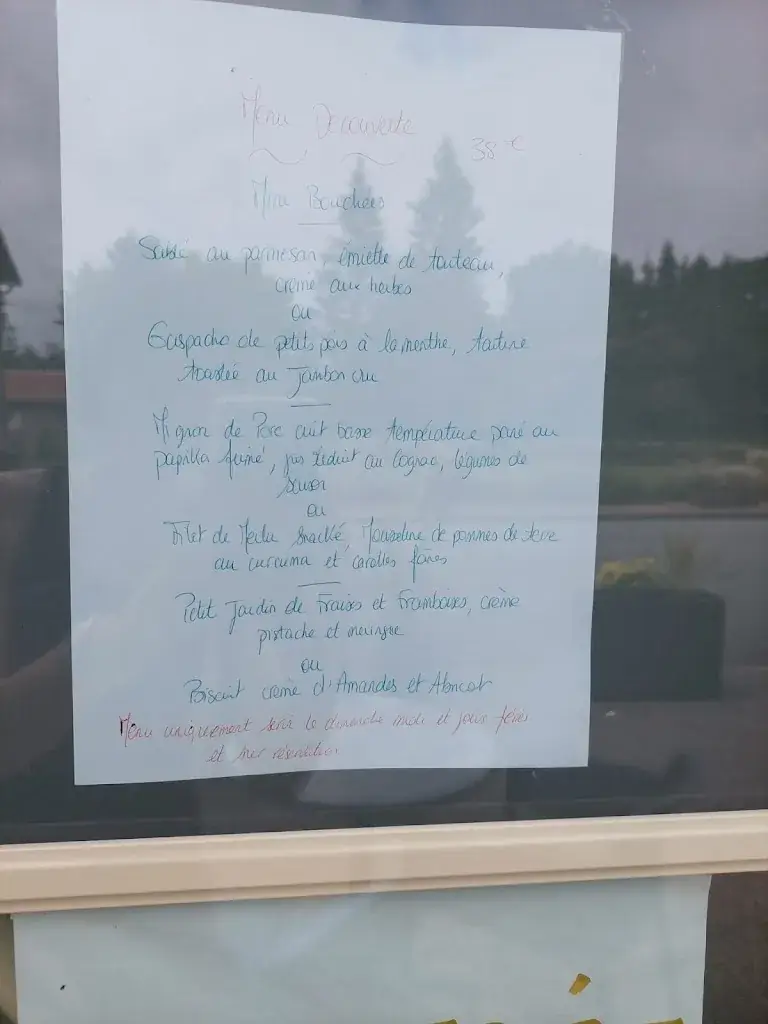 Menu Découverte
38 €
Mini Bouchées
Sablé au parmesan, émietté de tourteau,
crème aux herbes
ou
Gaspacho de petits pois à la menthe, tartine
toastée au Jambon cru
Mignon de Porc cuit basse température pané au
paprika fumé, jus réduit au Cognac, légumes de
saison
ou
Filet de Merlu snacké, Mousseline de pommes de terre
au curcuma et carottes fânes
Petit Jardin de Fraises et Framboises, crème
pistache et meringue
ou
Biscuit crème d'Amandes et Abricot
Menu uniquement servi le dimanche midi et jours fériés
et sur réservation